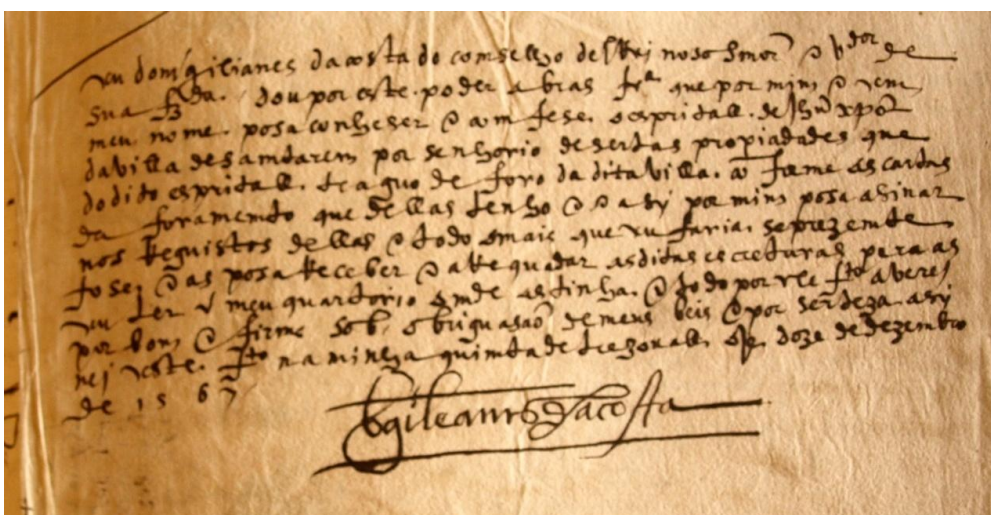 eu dom gilianes da costa do comselho delRei noso Smor e vdor de
sua fzda. dou por este poder a bras fra que por mim e em
meu nome posa conheser e comfese o espritall de Jhu xpo
da villa de samtarem por senhorio desertas propiadades que
do dito espritall. te aguo de foro da dita villa. comforme as cartas
da foramemto que dellas tenho e o asy por mim posa asinar
nos Reguistos dellas e todo o mais que eu faria. se prezemte
fose, e as posa Receber e aRequadar as ditas escreturas pera as
eu ter e meu quartorio omde as tinha. e todo por ele fto averej
por bom e firme sob. obriguasaõ de meus beis e por serteza asy
nej este. fto na minha quimta de oje doze de dezembro
de 1567
dgileanes dacosta